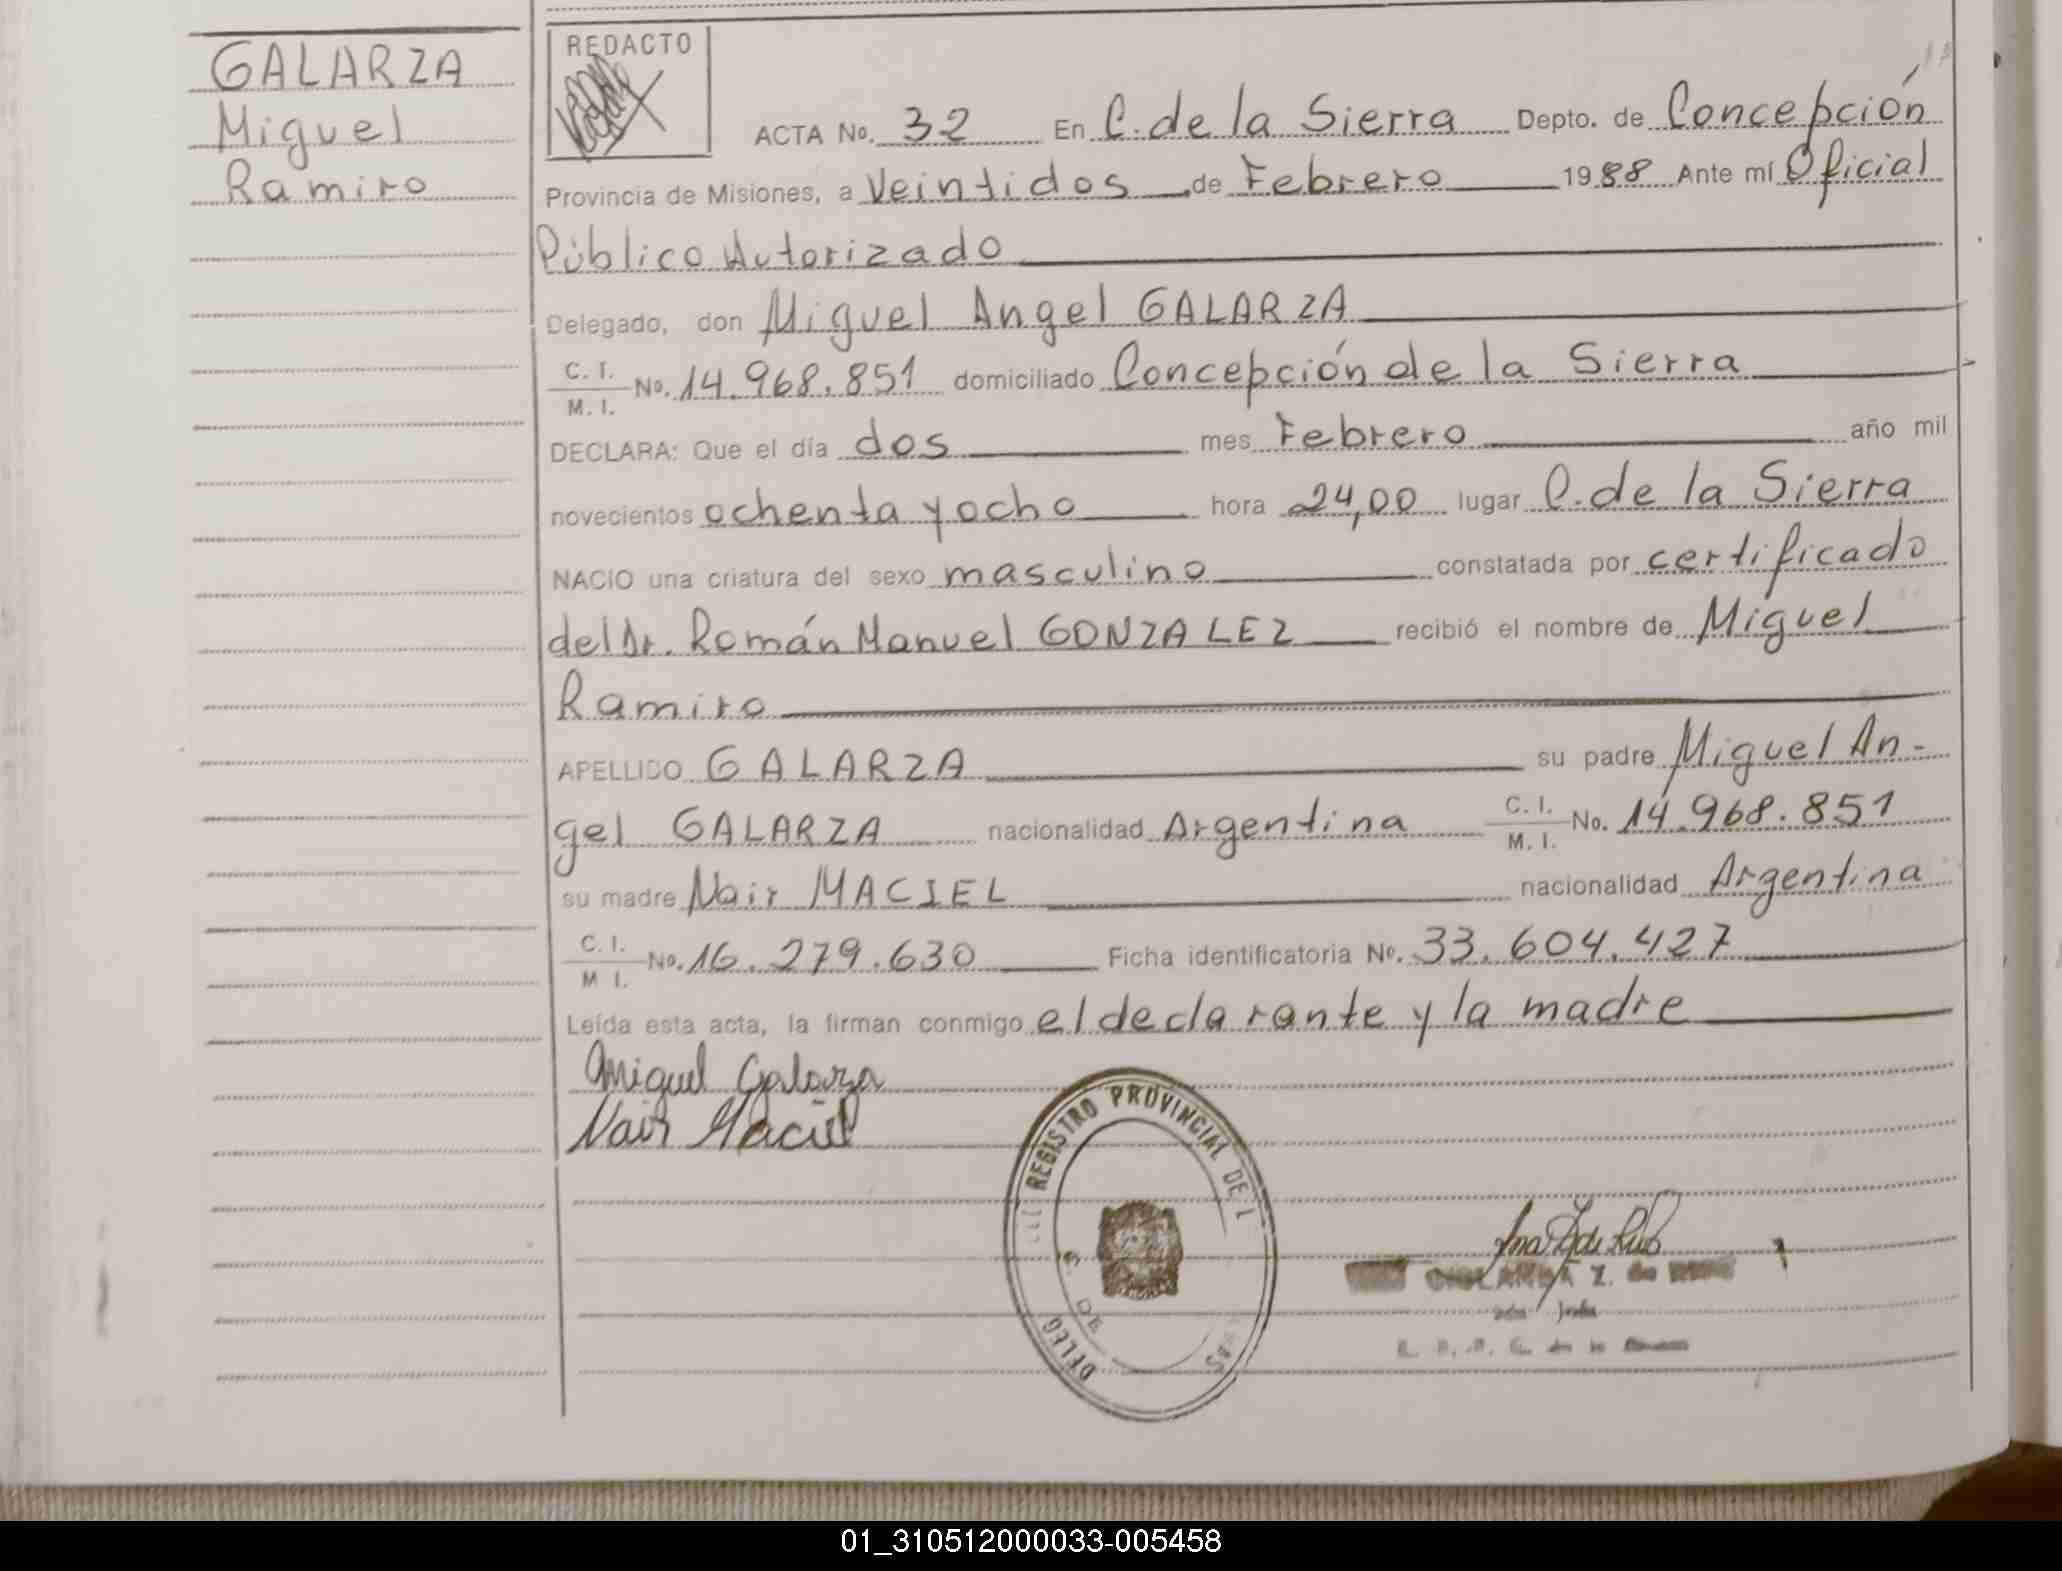 GALARZA
Miguel
Ramiro
REDACTO
ACTA No. 32 En C. de la Sierra Depto. de Concepción
Provincia de Misiones, a Veintidos de Febrero 1988 Ante mí Oficial
Público Autorizado
Delegado, don Miguel Angel GALARZA
C. I.
M. I. No. 14.968.851 domiciliado Concepción de la Sierra
DECLARA: Que el día dos mes Febrero año mil
novecientos ochenta y ocho hora 24,00 lugar C. de la Sierra
NACIO una criatura del sexo masculino constatada por certificado
del Dr. Román Manuel GONZALEZ recibió el nombre de Miguel
Ramiro
APELLIDO GALARZA su padre Miguel An-
gel GALARZA nacionalidad Argentina C. I. M. I. No. 14.968.851
su madre Nair MACIEL nacionalidad Argentina
C. I. M I. No. 16.279.630 Ficha identificatoria No. 33.604.427
Leída esta acta, la firman conmigo el declarante y la madre
Miguel Galarza
Nair Maciel
REGISTRO PROVINCIAL DE
DELEG
DE
Z. de
01_310512000033-005458